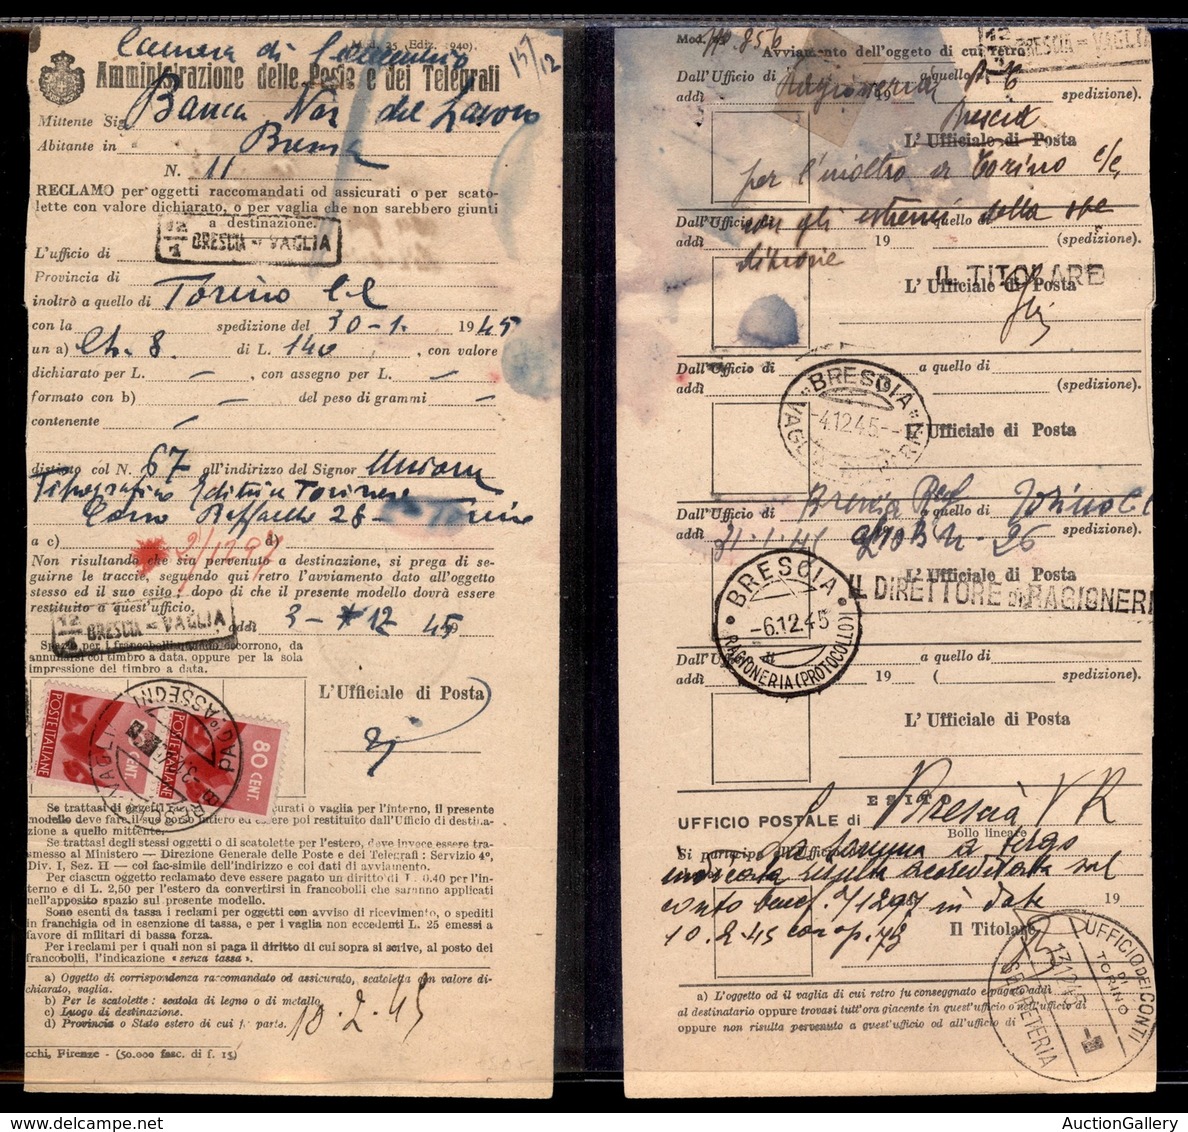 Mod. 25 (Ediz. 1940).
Camera di Commercio
15/12
Amministrazione delle Poste e dei Telegrafi
Mittente Sig. Banca Naz del Lavoro
Abitante in Brescia
N. 11
RECLAMO per oggetti raccomandati od assicurati o per scato-
lette con valore dichiarato, o per vaglia che non sarebbero giunti
a destinazione.
12/1 BRESCIA = VAGLIA
L'ufficio di
Provincia di
inoltrò a quello di Torino CC
con la spedizione del 30-1. 1945
un a) Ch. 8 di L. 140, con valore
dichiarato per L. –, con assegno per L. –
formato con b) – del peso di grammi –
contenente –
distinto col N. 67 all'indirizzo del Signor Unione
Tipografico Editrice Torinese
Corso Raffaello 28 – Torino
a c) d)
2/1297
Non risultando che sia pervenuto a destinazione, si prega di se-
guirne le traccie, segnendo qui retro l'avviamento dato all'oggetto
stesso ed il suo esito: dopo di che il presente modello dovrà essere
restituito a quest'ufficio.
BRESCIA = VAGLIA
addì 3 - 12 45
Spazio per i francobolli quando occorrono, da
annullarsi col timbro a data, oppure per la sola
impressione del timbro a data.
L'Ufficiale di Posta
POSTE ITALIANE
CENT.
POSTE ITALIANE
80 CENT.
PAG. ASSEGNI
Se trattasi di oggetti assicurati o vaglia per l'interno, il presente
modello deve fare il suo corso intiero ed essere poi restituito dall'Ufficio di destina-
zione a quello mittente.
Se trattasi degli stessi oggetti o di scatolette per l'estero, deve invece essere tra-
smesso al Ministero — Direzione Generale delle Poste e dei Telegrafi: Servizio 4°,
Div. I, Sez. II — col fac-simile dell'indirizzo e coi dati di avviamento.
Per ciascun oggetto reclamato deve essere pagato un diritto di L. 0,40 per l'in-
terno e di L. 2,50 per l'estero da convertirsi in francobolli che saranno applicati
nell'apposito spazio sul presente modello.
Sono esenti da tassa i reclami per oggetti con avviso di ricevimento, o spediti
in franchigia od in esenzione di tassa, e per i vaglia non eccedenti L. 25 emessi a
favore di militari di bassa forza.
Per i reclami per i quali non si paga il diritto di cui sopra si scrive, al posto dei
francobolli, l'indicazione « senza tassa ».
a) Oggetto di corrispondenza raccomandato od assicurato, scatoletta con valore di-
chiarato, vaglia.
b) Per le scatolette: scatola di legno o di metallo.
c) Luogo di destinazione.
d) Provincia o Stato estero di cui fa parte.
10.2.45
cchi, Firenze - (50.000 fasc. di f. 15)
Mod.
856
BRESCIA = VAGLIA
Avviamento dell'oggeto di cui retro
Dall'Ufficio di Ragioneria a quello di
addì 19 spedizione).
Brescia
L'Ufficiale di Posta
per l'inoltro a Torino c/c
Dall'Ufficio di con gli estremi a quello di della spe
addì 19 (spedizione).
dizione
IL TITOLARE
L'Ufficiale di Posta
Dall'Ufficio di a quello di
addì (spedizione).
BRESCIA
-4.12.45-
VAGLIA
L'Ufficiale di Posta
Dall'Ufficio di Brescia a quello di Torino CC
addì 31-1-45 spedizione).
L'Ufficiale di Posta
IL DIRETTORE di RAGIONERI
BRESCIA
-6.12.45
RAGIONERIA (PROTOCOLLO)
Dall'Ufficio di a quello di
addì 19 ( spedizione).
L'Ufficiale di Posta
ESITO
UFFICIO POSTALE di Brescia V R
Bollo lineare
Si partecipa all'Ufficio
La somma a tergo
indicata risulta accreditata sul
conto 2/1297 in data 19
10.2.45 Il Titolare
UFFICIO DEI CONTI
DI TORINO
SEGRETERIA
a) L'oggetto od il vaglia di cui retro fu consegnato e pagato addì
al destinatario oppure trovasi tutt'ora giacente in quest'ufficio o nell'ufficio di
oppure non risulta pervenuto a quest'ufficio od all'ufficio di
AuctionGallery.com